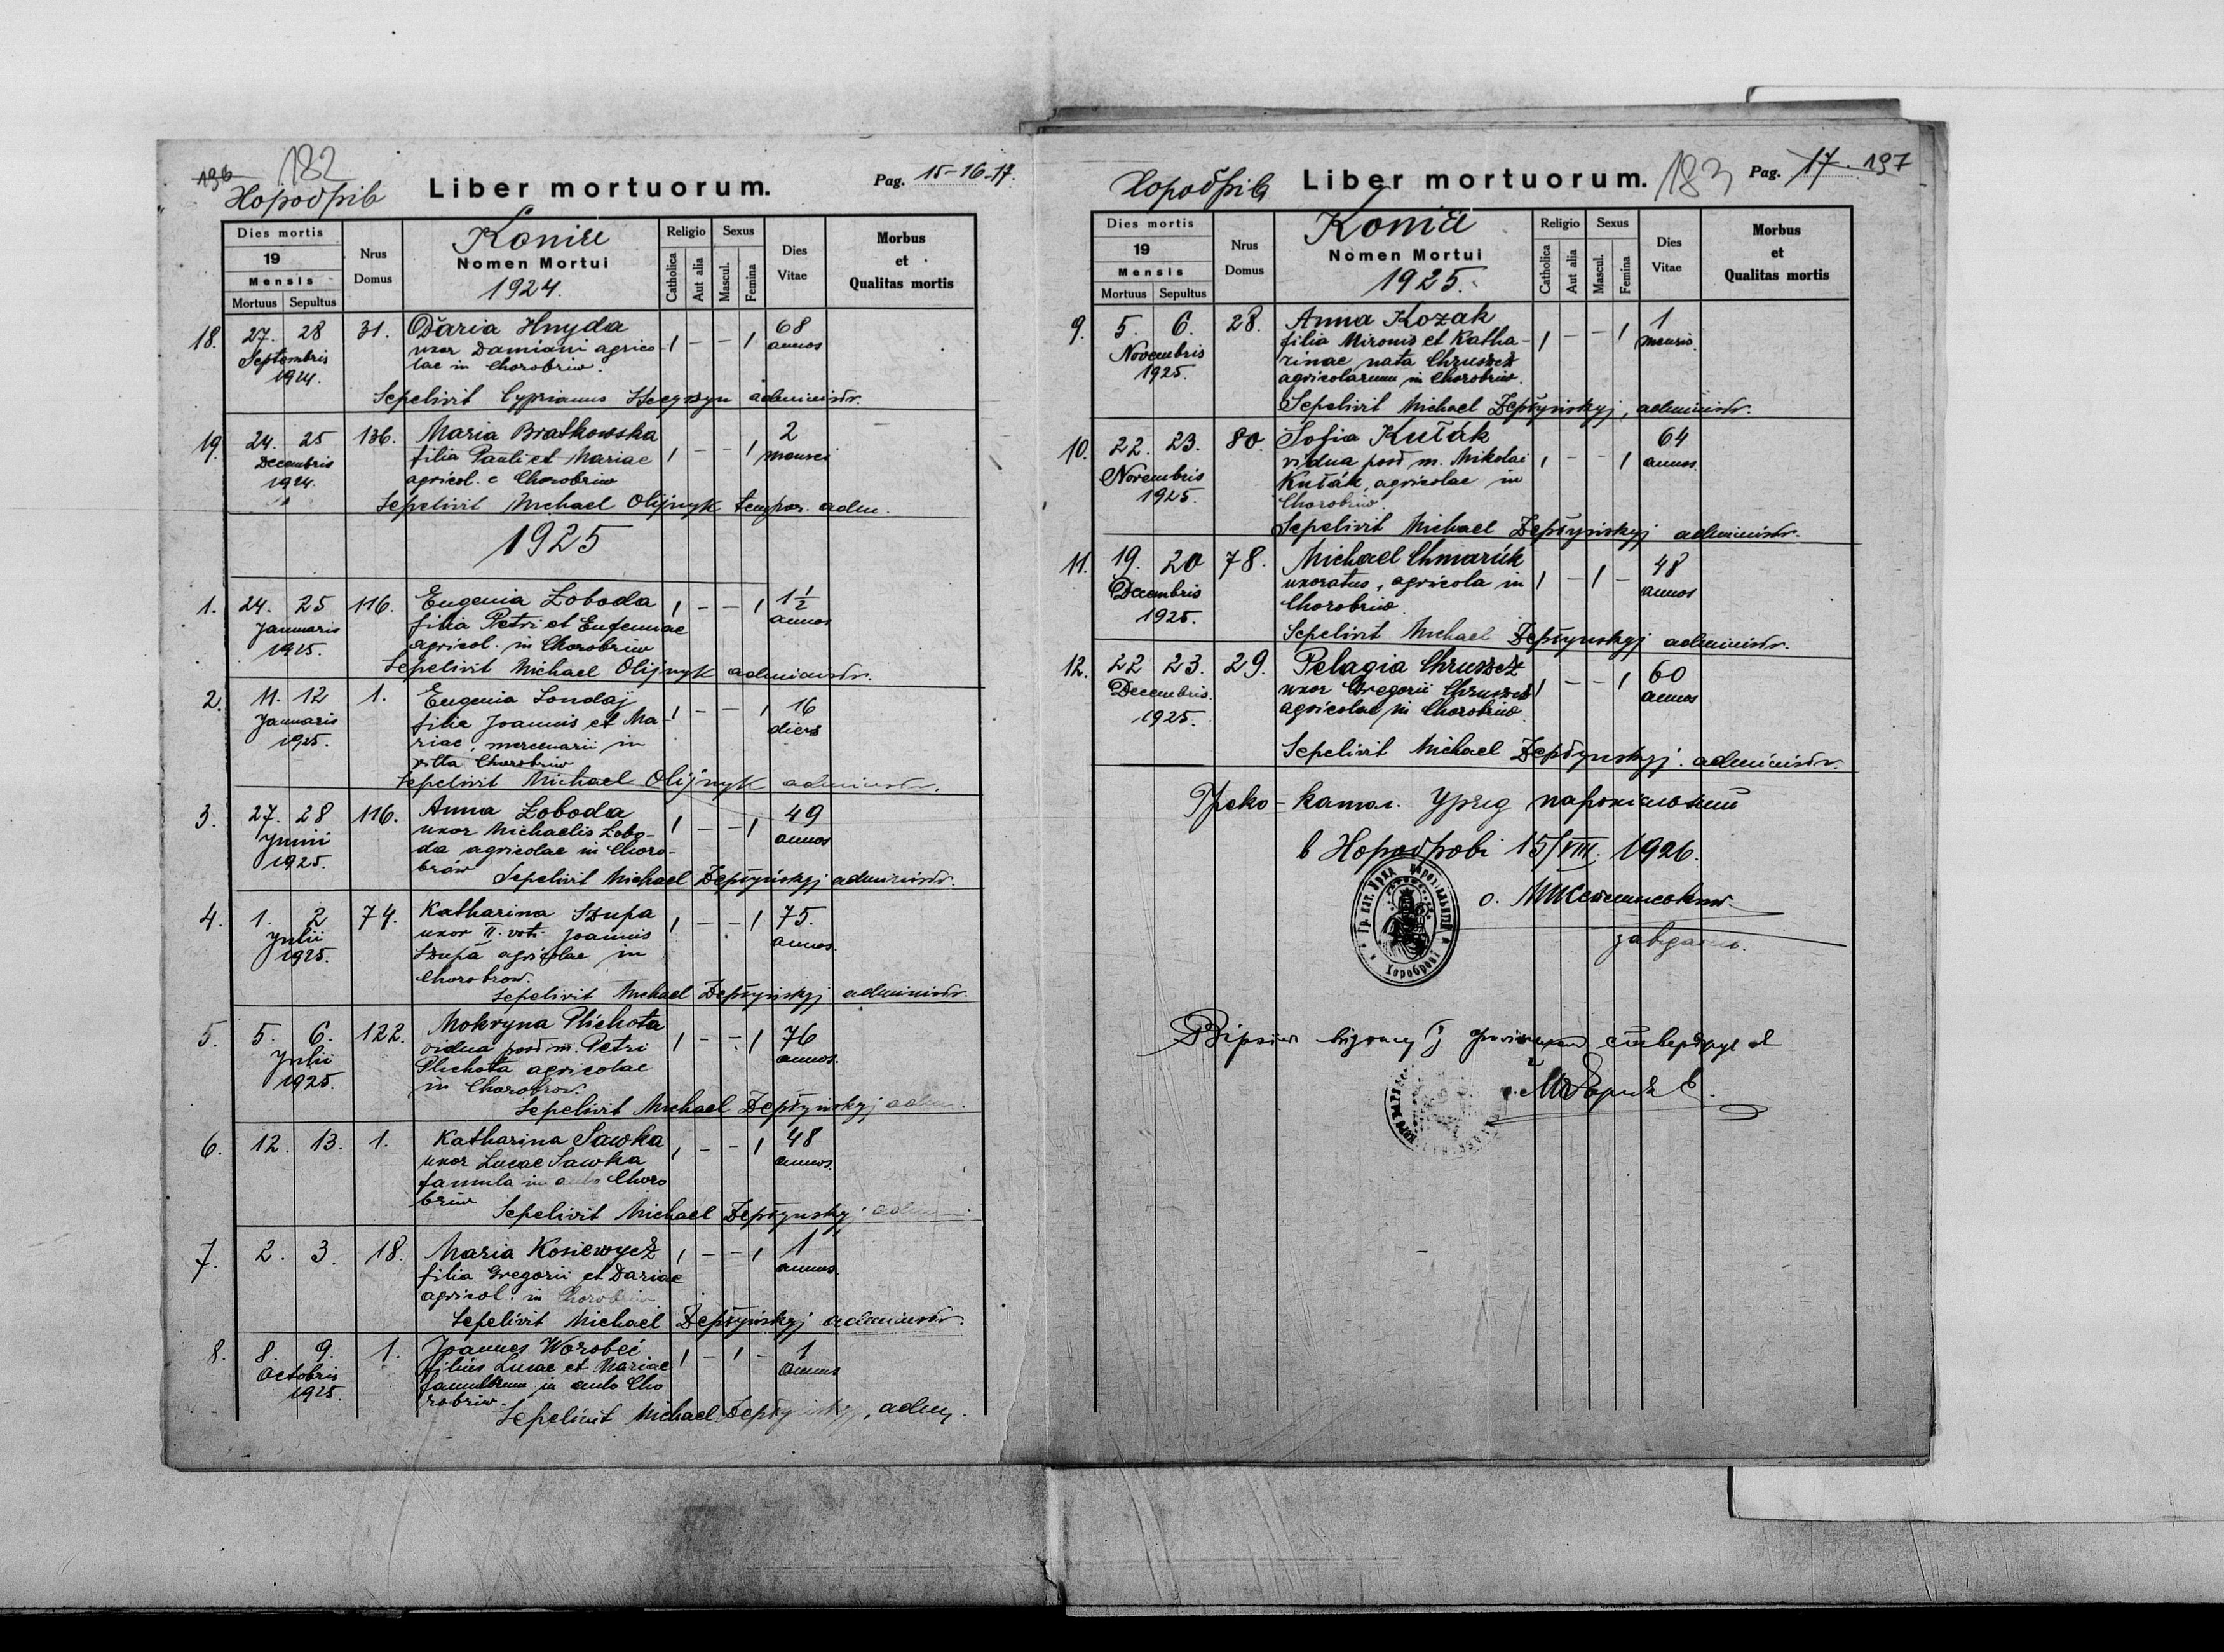 196 182
Хородрів
Liber mortuorum.
Pag. 15-16-17.
Dies mortis
19
Mensis
Mortuus Sepultus
Nrus Domus
Konice
Nomen Mortui
1924.
Religio
Catholica
Aut alia
Sexus
Mascul.
Femina
Dies Vitae
Morbus et Qualitas mortis
18. 27. 28 31. Daria Hnyda 1 - - 1 68
Septembris uxor Damiani agrico- annos
1924. lae in Chorobriw.
Sepelivit Cyprianus administr.
19. 24. 25 136. Maria Bratkowska 1 - - 1 2
Decembris filia Pauli et Mariae menses
1924. agricol. e Chorobriw
Sepelivit Michael Olijnyk tempor. adm.
1925
1. 24. 25 116. Eugenia Łoboda 1 - - 1 1½
Januaris filia Petri et Eufemiae annos
1925. agricol. in Chorobriw
Sepelivit Michael Olijnyk administr.
2. 11. 12 1. Eugenia Londaj 1 - - 1 16
Januaris filia Joannis et Ma- dies
1925. riae, mercenarii in
villa Chorobriw
Sepelivit Michael Olijnyk administr.
3. 27. 28 116. Anna Łoboda 1 - - 1 49
Junii uxor Michaelis Łobo- annos
1925. da agricolae in Choro-
brów
Sepelivit Michael Depczynskyj administr.
4. 1. 2 74. Katharina Szupa 1 - - 1 75.
Julii uxor II. voti Joannis annos.
1925. Szupa agricolae in
Chorobrow.
Sepelivit Michael Depczynskyj administr.
5. 5. 6. 122. Mokryna Plichota 1 - - 1 76
Julii vidua post m. Petri annos.
1925. Plichota agricolae
in Chorobrow.
Sepelivit Michael Depczynskyj adm.
6. 12. 13. 1. Katharina Sawka 1 - - 1 48
uxor Lucae Sawka annos.
famula in aulo Choro
briw
Sepelivit Michael Depczynskyj
7. 2. 3. 18. Maria Kosiewycz 1 - - 1 1
filia Gregorii et Dariae annus.
agricol. in Chorobriw
Sepelivit Michael Depczynskyj administr.
8. 8. 9. 1. Joannes Worobeć 1 - 1 - 1
Octobris filius Lucae et Mariae annus
1925. famulorum in aulo Cho
robriw.
Sepelivit Michael Depczynskyj, adm.
Хородрів
Liber mortuorum. 183
Pag. 17. 197
Dies mortis
19
Mensis
Mortuus Sepultus
Nrus Domus
Konice
Nomen Mortui
1925.
Religio
Catholica
Aut alia
Sexus
Mascul.
Femina
Dies Vitae
Morbus et Qualitas mortis
9. 5. 6. 28. Anna Kozak 1 - - 1 1
Novembris filia Mironis et Katha- mensis.
1925. rinae nata Chruszcz
agricolarum in Chorobriw.
Sepelivit Michael Depczynskyj, administr.
10. 22. 23. 80. Sofia Kuták 1 - - 1 64
Novembris vidua post m. Mikolai annos.
1925. Kuták, agricolae in
Chorobriw.
Sepelivit Michael Depczynskyj administr.
11. 19. 20 78. Michael Chmarúk 1 - 1 - 48
Decembris uxoratus, agricola in annos
1925. Chorobriw.
Sepelivit Michael Depczynskyj administr.
12. 22 23. 29. Pelagia Chruszcz 1 - - 1 60
Decembris. uxor Gregorii Chruszcz annos
1925. agricolae in Chorobriw.
Sepelivit Michael Depczynskyj. administr.
Греко-катол. Уряд парохіяльний
в Хородрові 15/VIII. 1926.
о.
завідатель.